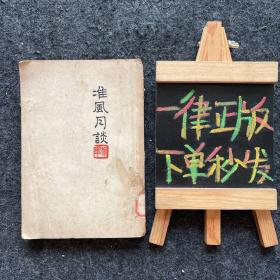 准风月谈
一律正版
下单秒发